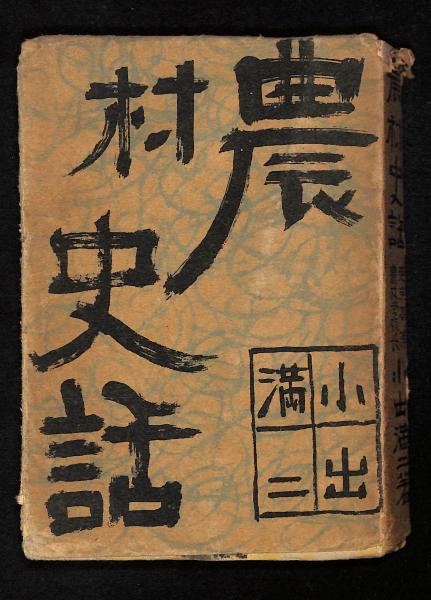 農
村史話
小出
満二
農村史話
小出満二著